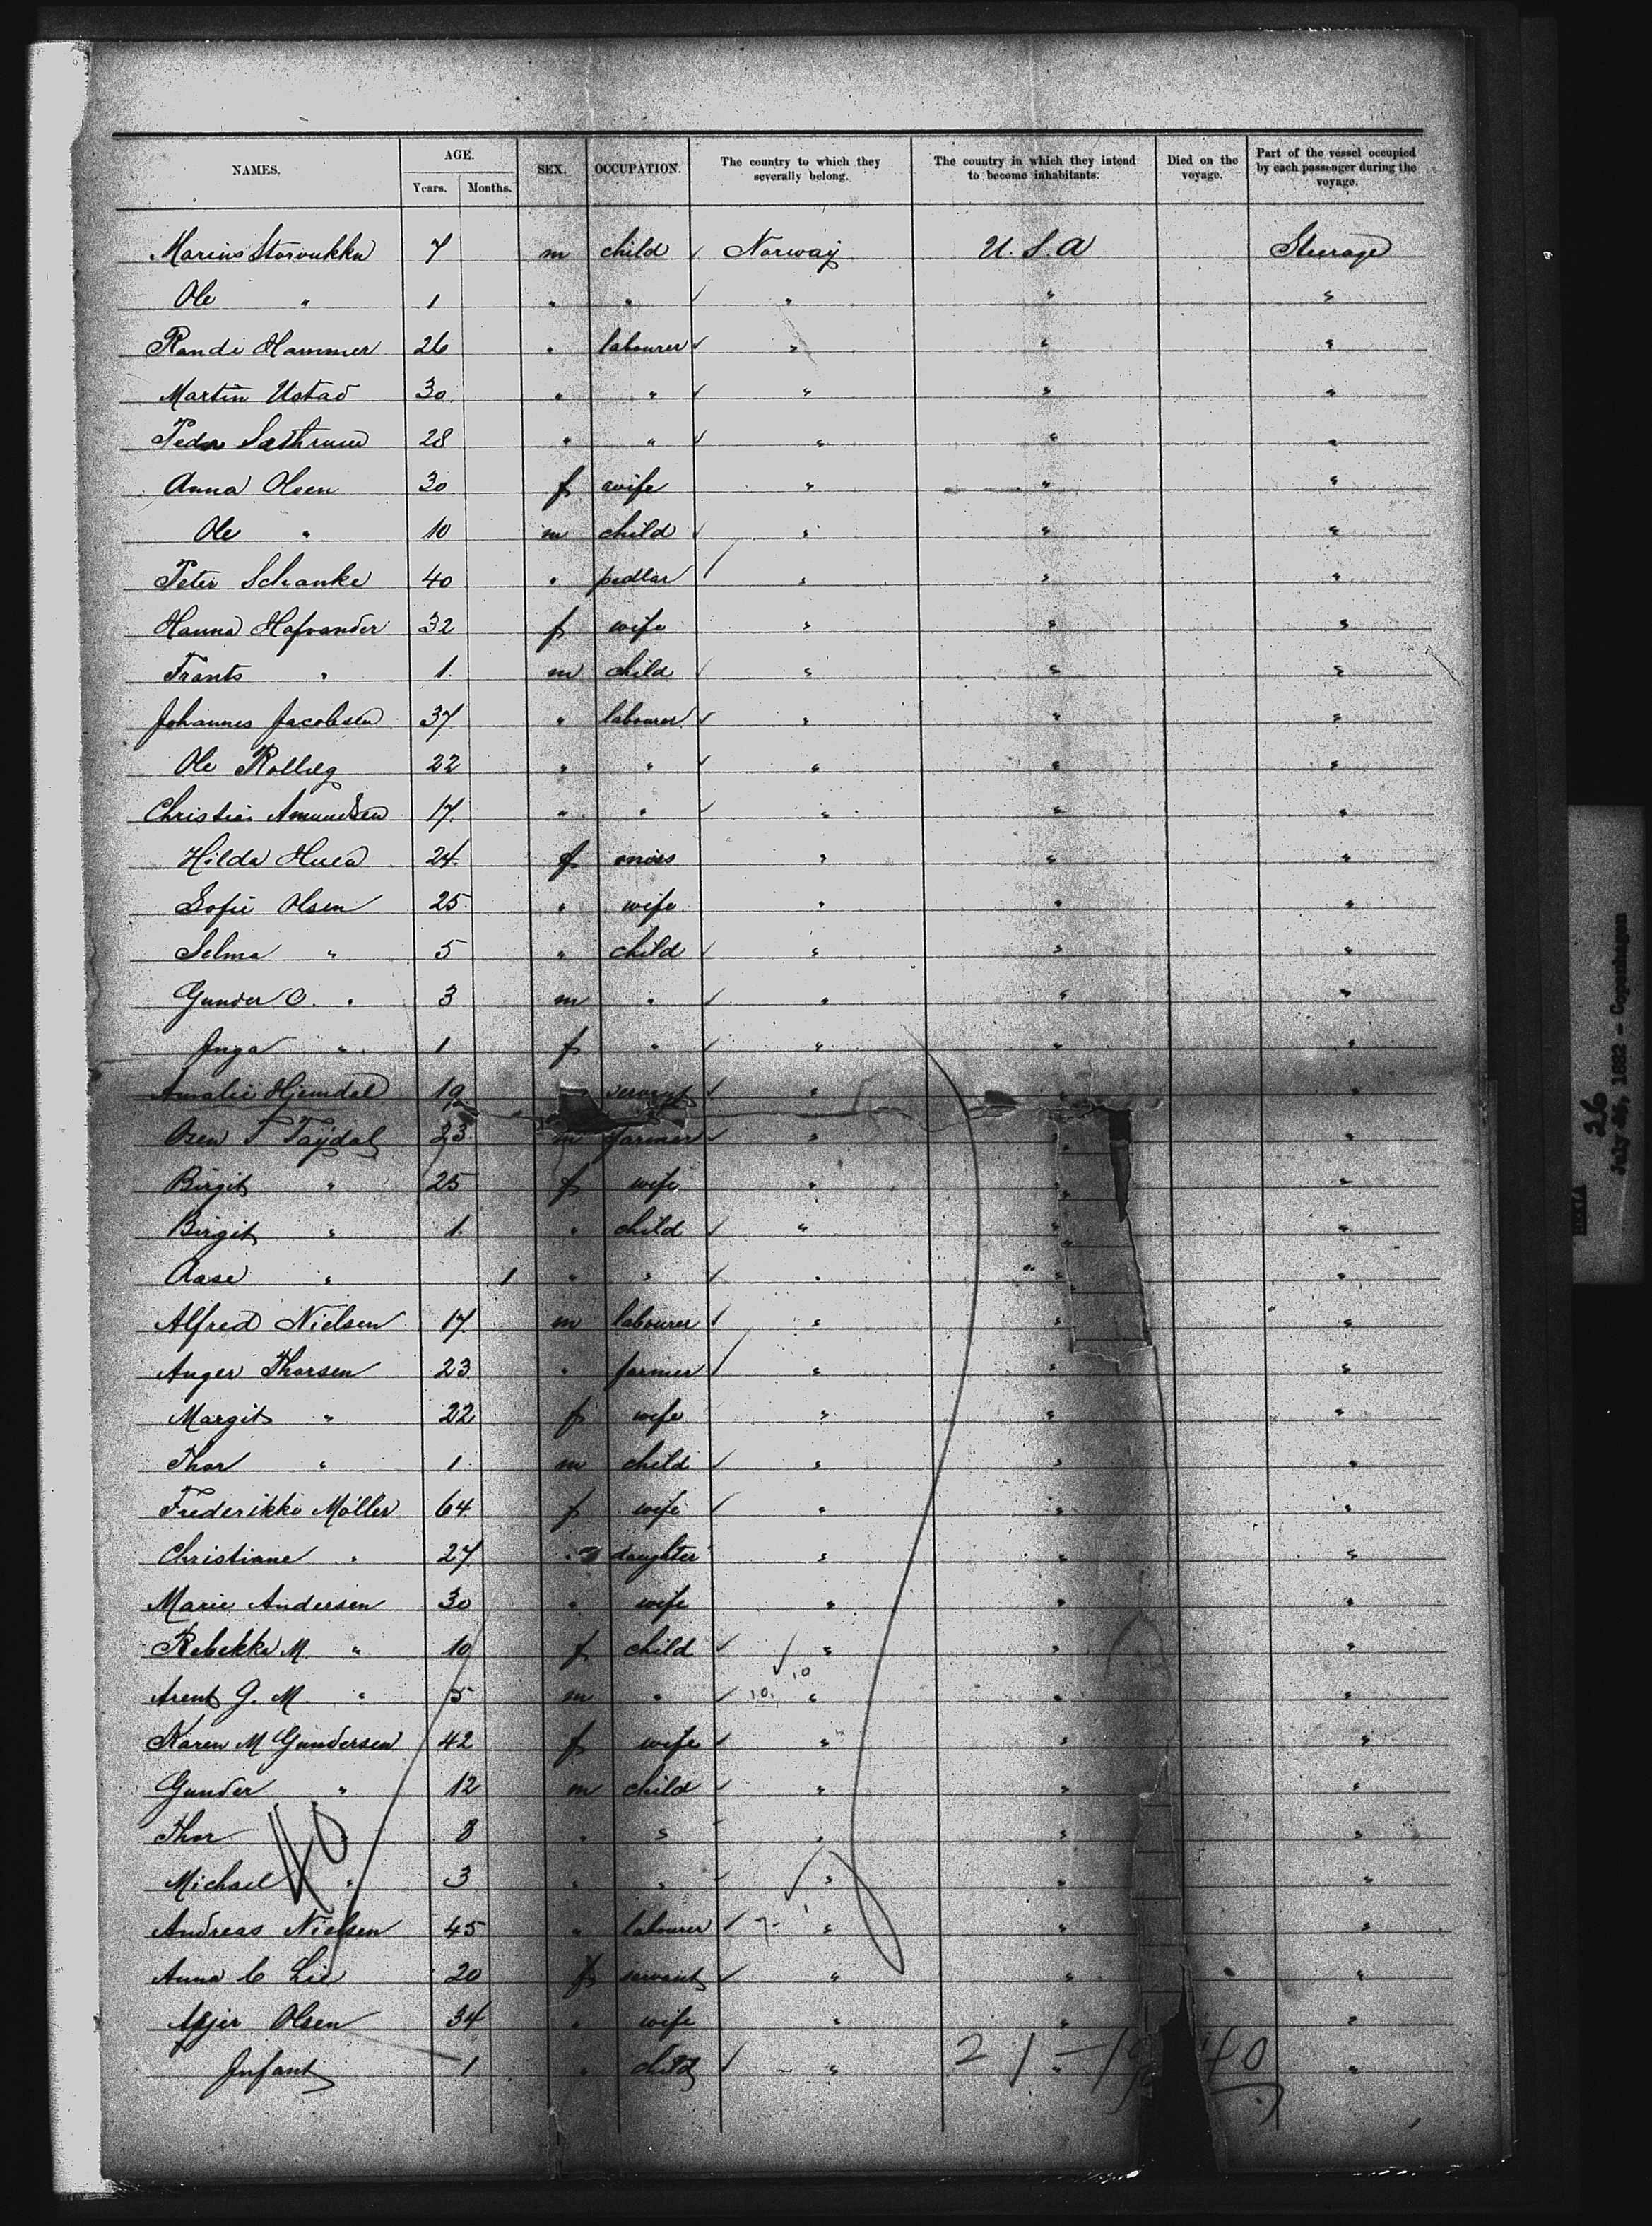 NAMES. AGE. SEX. OCCUPATION. The country to which they severally belong. The country in which they intend to become inhabitants. Died on the voyage. Part of the vessel occupied by each passenger during the voyage.
Years. Months.
Marius 7 m child Norway U.S.A Steerage
Ole " 1 " " " " "
Randi Hammer 26 " labourer " " "
Martin Ustad 30 " " " " "
Peder 28 " " " " "
Anna Olsen 30 f wife " " "
Ole " 10 m child " " "
Peter Schanke 40 " pedlar " " "
Hanna Hafvander 32 f wife " " "
Frants " 1 m child " " "
Johannes Jacobsen 37 " labourer " " "
Ole 22 " " " " "
Christian Amundsen 17 " " " " "
Hilda 24 f miss " " "
Sofie Olsen 25 " wife " " "
Selma " 5 " child " " "
Gunder O. " 3 m " " " "
Inga " 1 f " " " "
Amalie Hjemdal 19 servant " " "
T Tajdal 23 m farmer " " "
Birgit " 25 f wife " " "
Birgit " 1 " child " " "
Aase " 1 " " " " "
Alfred Nielsen 17 m labourer " " "
Anger Thorsen 23 " farmer " " "
Margit " 22 f wife " " "
Thor " 1 m child " " "
Frederikke Möller 64 f wife " " "
Christiane " 27 " daughter " " "
Marie Andersen 30 " wife " " "
Rebekka M. " 10 f child " " "
Arent G. M. " 5 m " 10 10 " " "
Karen M Gundersen 42 f wife " " "
Gunder " 12 m child " " "
Thor " 8 " " " " "
Michael " 3 " " " " "
40
Andreas Nielsen 45 " labourer " " "
Anna C Lie 20 f servant " " "
Olsen 34 " wife " " "
Infant 1 " child " " "
21 - 19 40
26
July 26, 1882 - Copenhagen